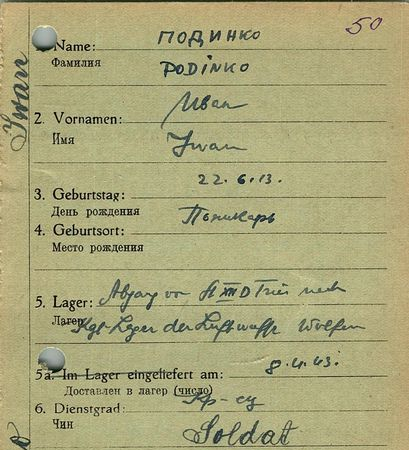 50
Name: ПОДИНКО
Фамилия PODINKO
Iwan
Иван
2. Vornamen:
Имя Iwan
3. Geburtstag: 22.6.13.
День рождения
4. Geburtsort:
Место рождения
5. Lager: Abgang von XII D Trier nach
Лагерь Kgf-Lager der Luftwaffe Wolfen
5a. Im Lager eingeliefert am: 8.4.43.
Доставлен в лагер (число)
6. Dienstgrad: Кр-ец
Чин Soldat